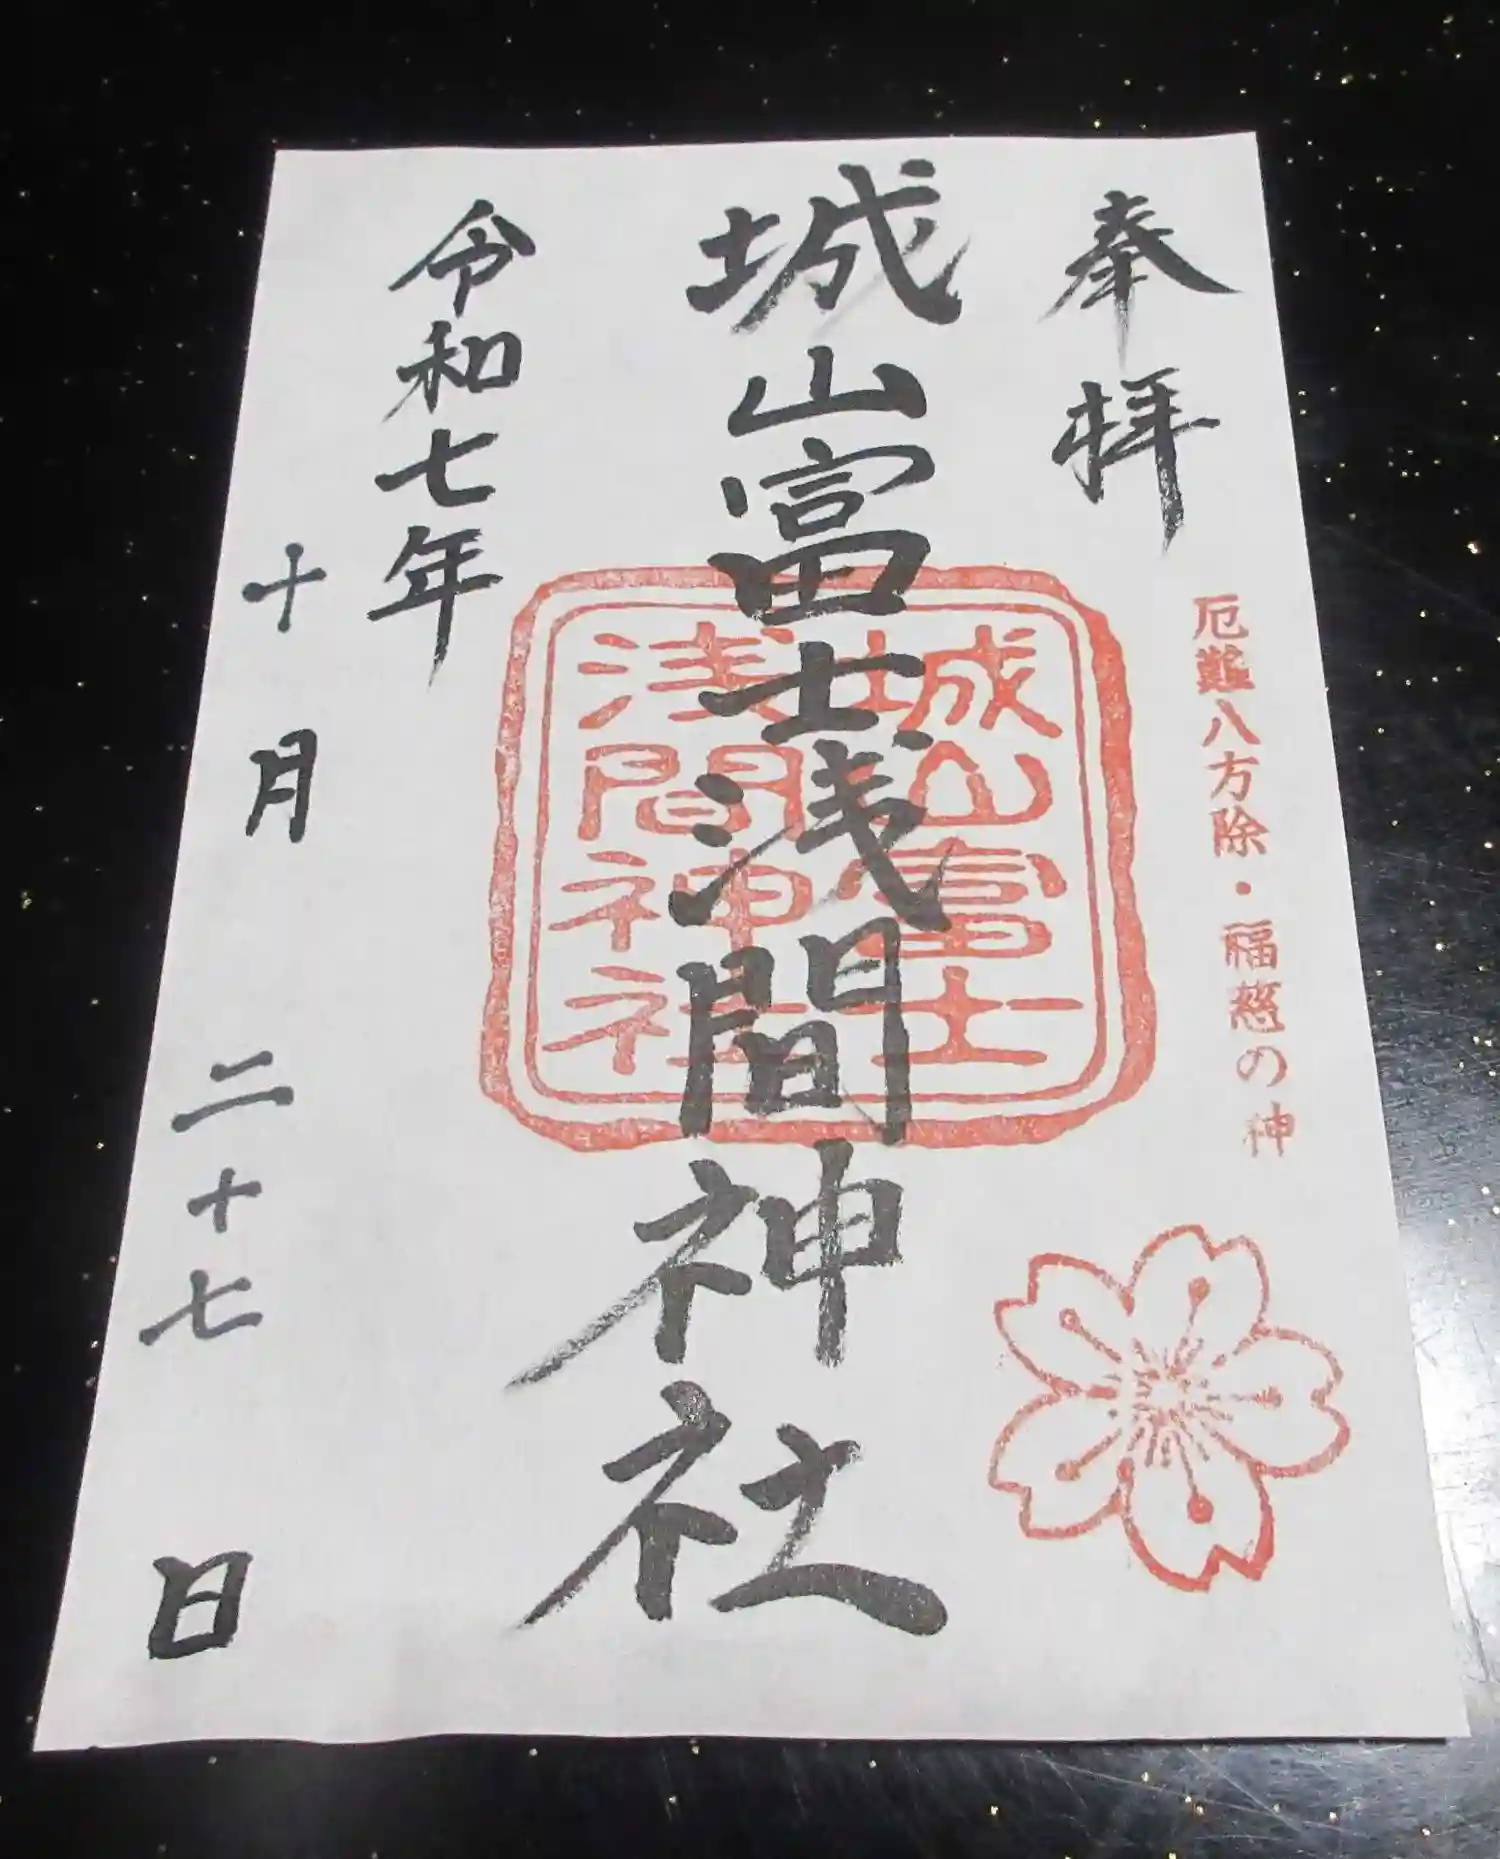 奉拝
厄難八方除・福慈の神
城山富士浅間神社
城山富士
浅間神社
令和七年
十月二十七日